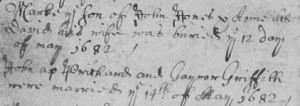 Marke ye son of John Jones & Anne ach
David his wife was buried ye 12 day
of may 1682 /
John ap Prichard and Gaynor Griffith
were married ye 14th of May 1682 /